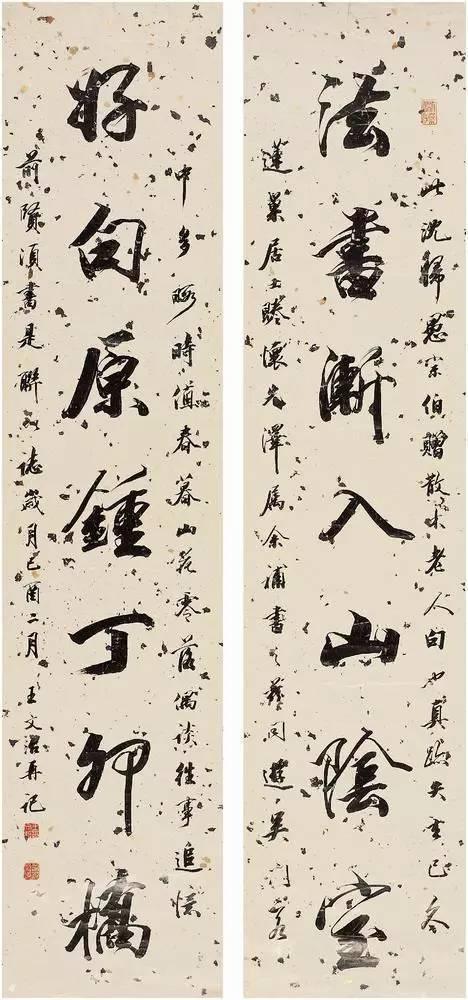 此沈歸愚宗伯贈散木老人句也真跡失去已久
法書漸入山陰室
蓬巢居士睠懷先澤屬余補書之同遊吳門
中多暇時值春暮山花零落偶談往事追憶
好句原鍾丁卯橋
前賢書是聯以誌歲月己酉二月王文治再記